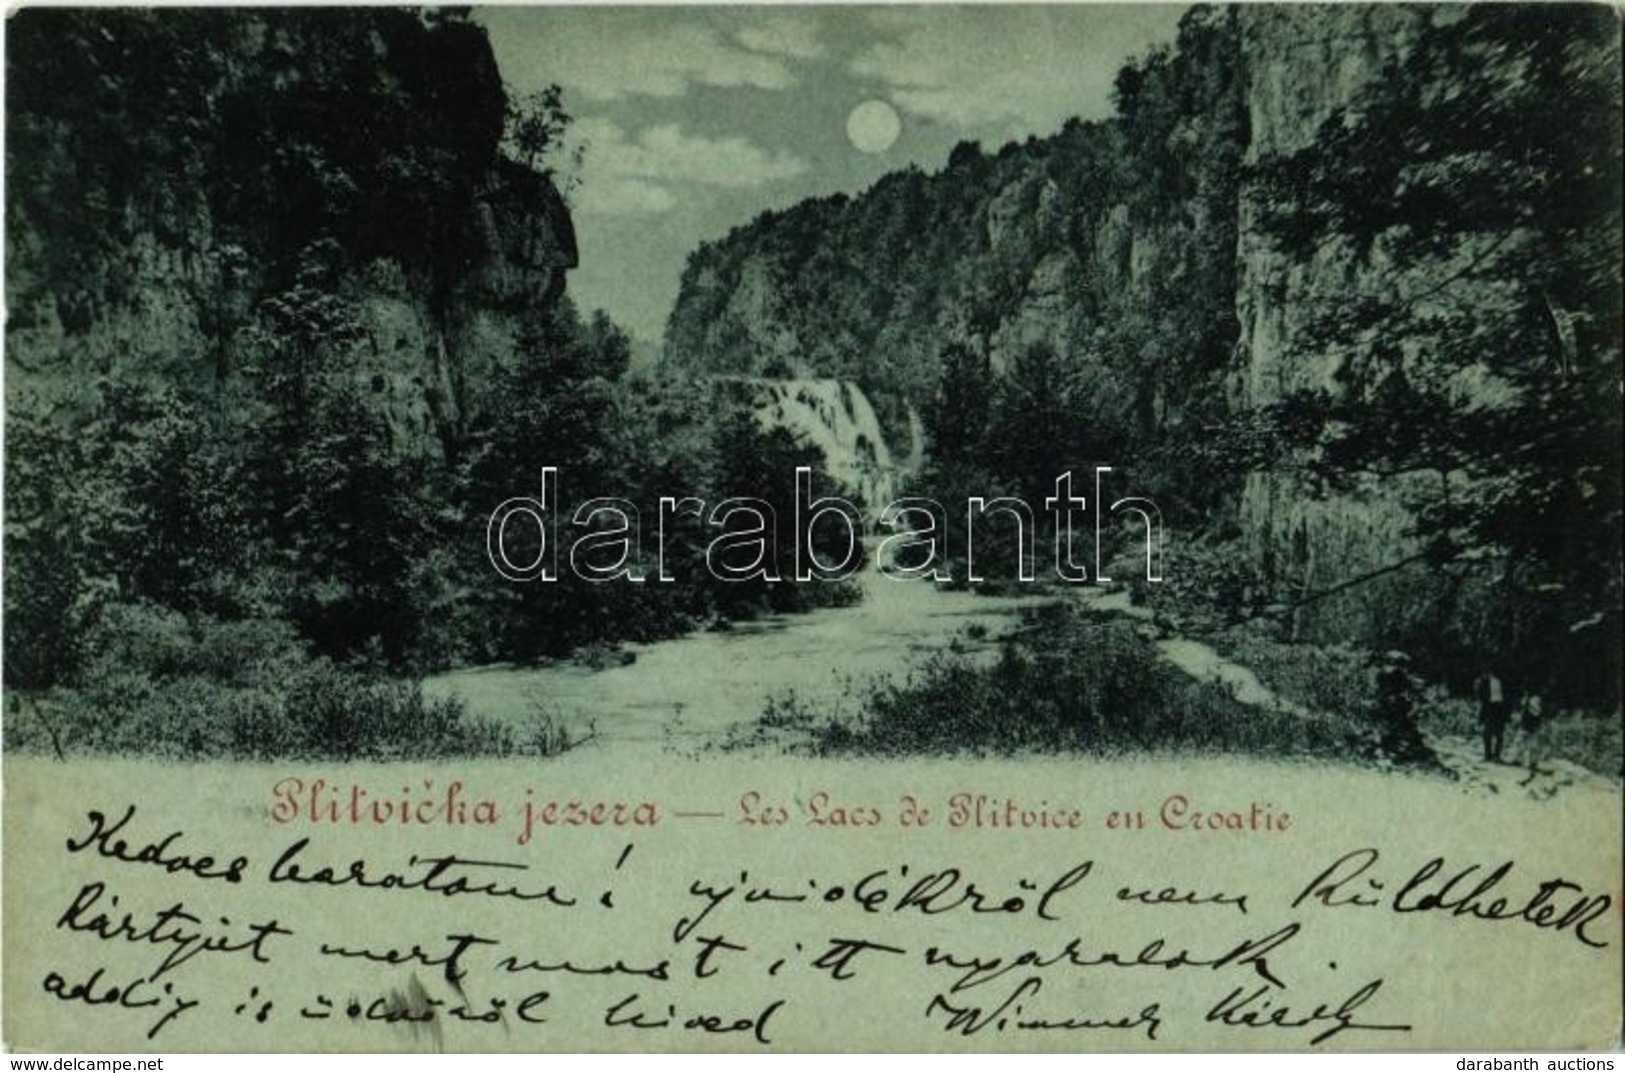 darabanth
Plitvička jezera — Les Lacs de Plitvice en Croatie
Kedves barátom! uj vidékről nem küldhetek
kártyát mert most itt nyaralok.
addig is üdvözöl hived Wimmer Károly
darabanth auctions